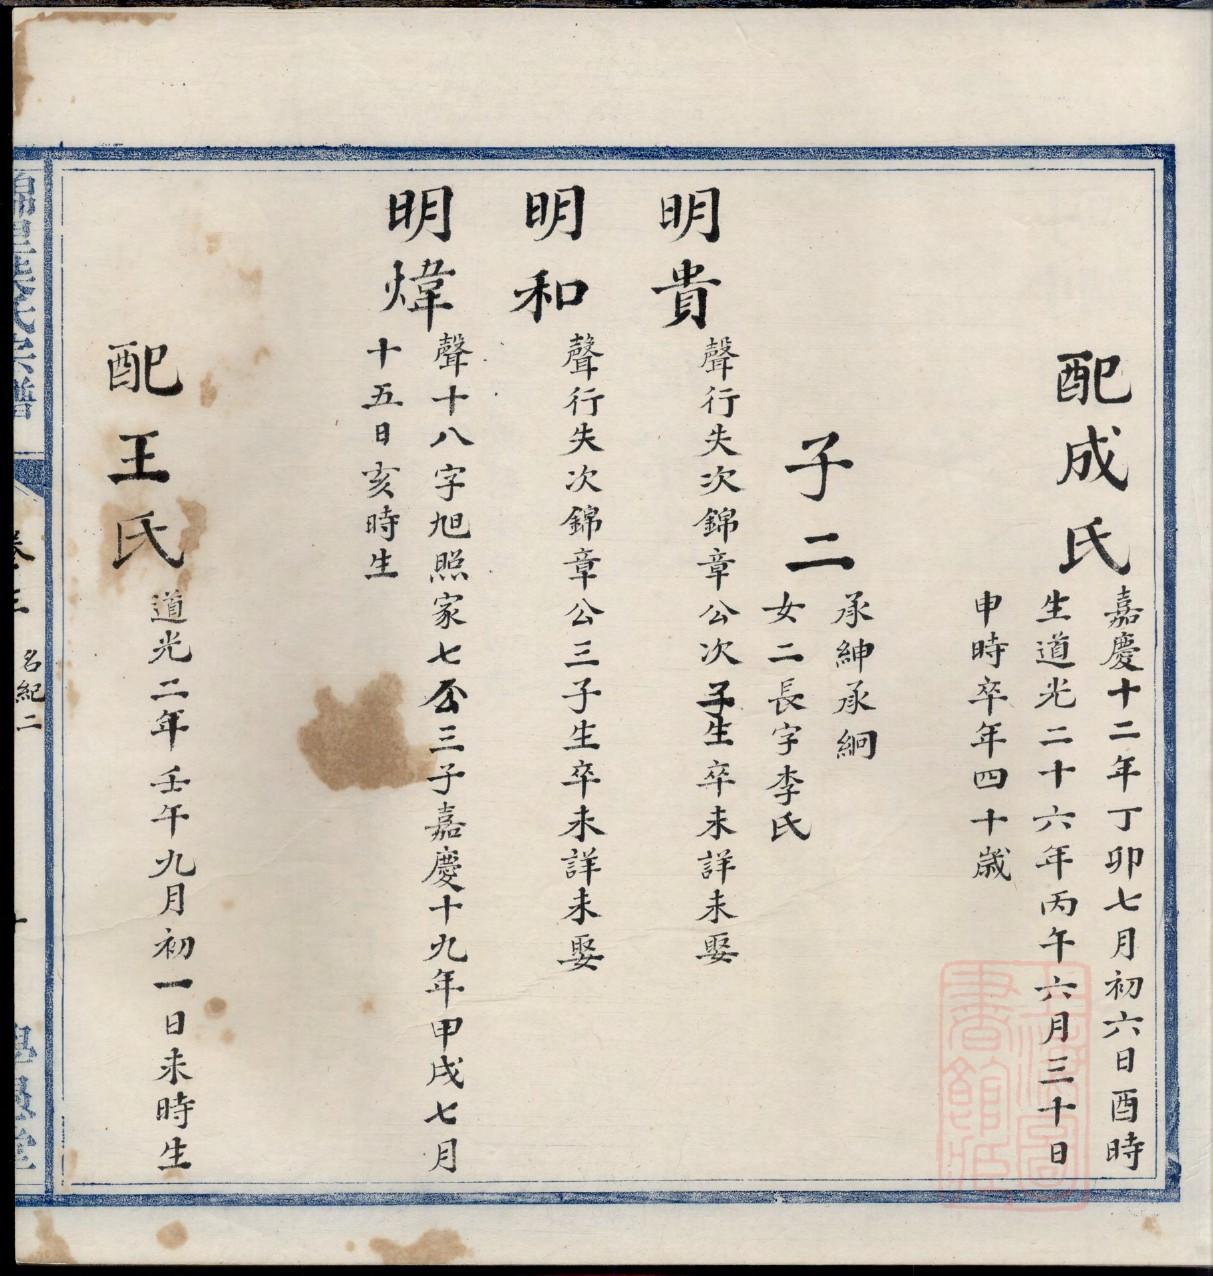 配成氏
嘉慶十二年丁卯七月初六日酉時
生道光二十六年丙午六月三十日
申時卒年四十歲
子二
承紳承絅
女二長字李氏
明貴
聲行失次錦章公次子生卒未詳未娶
明和
聲行失次錦章公三子生卒未詳未娶
明煒
聲十八字旭照家七公三子嘉慶十九年甲戌七月
十五日亥時生
配王氏
道光二年壬午九月初一日未時生
氏宗譜
卷三
名紀二